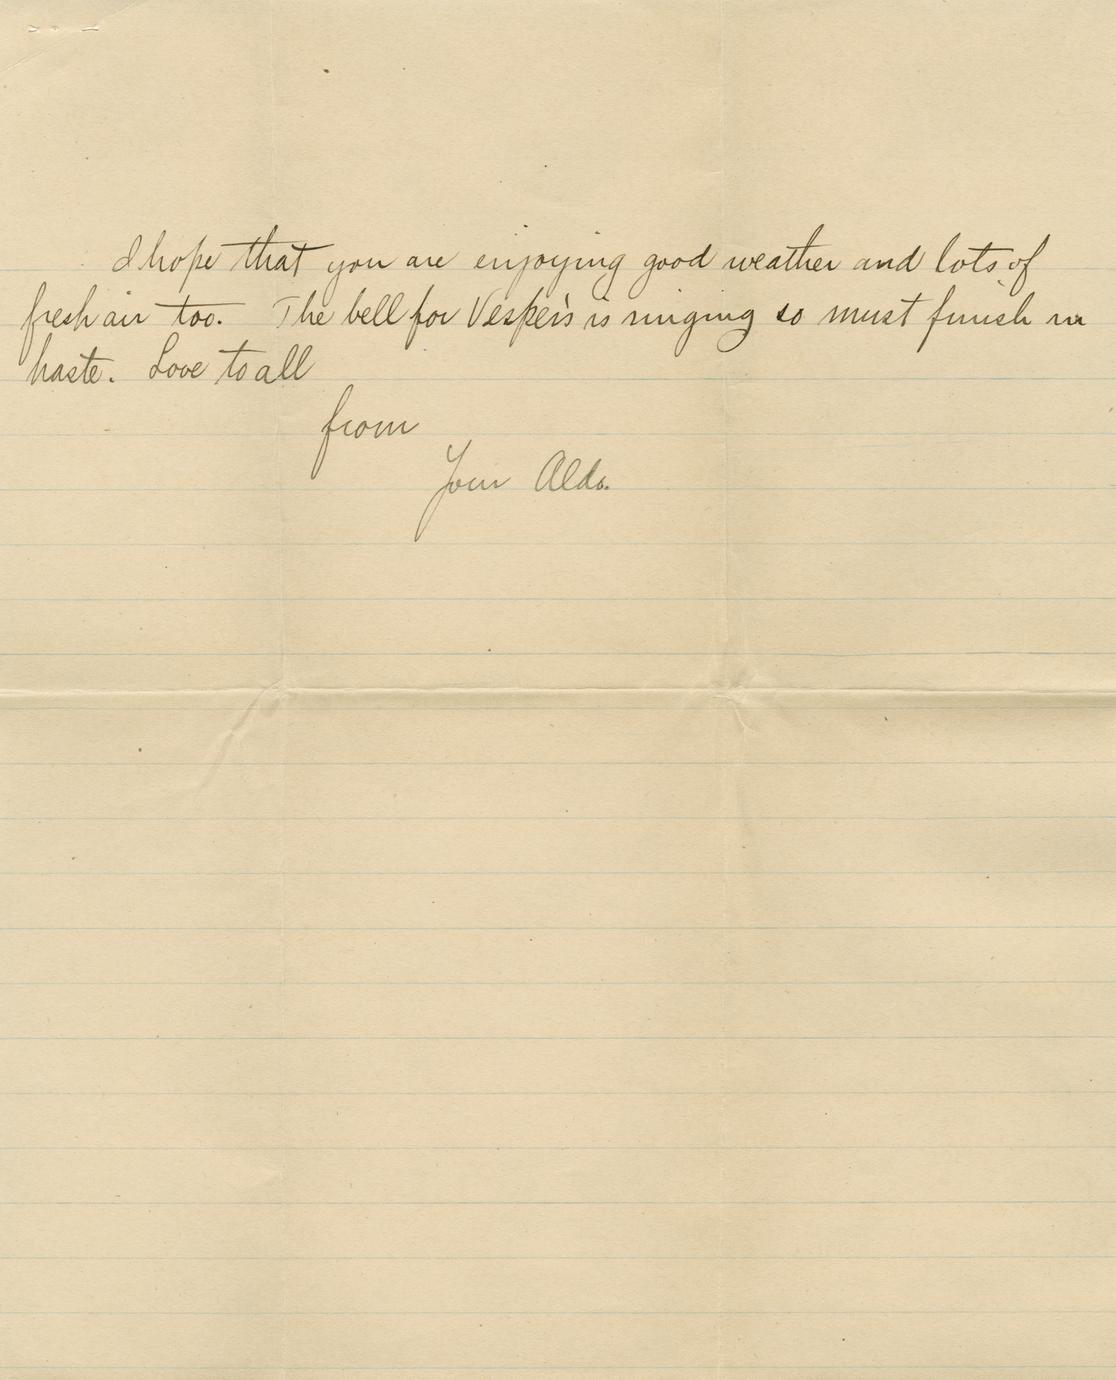 I hope that you are enjoying good weather and lots of
fresh air too. The bell for Vesper's is ringing so must finish in
haste. Love to all
from
Your Aldo.